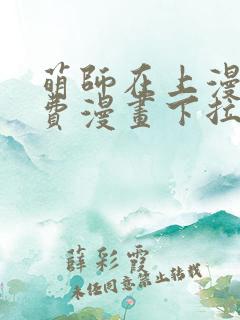 萌師在上漫
費漫畫下拉
薛彩霞
未经同意禁止转载